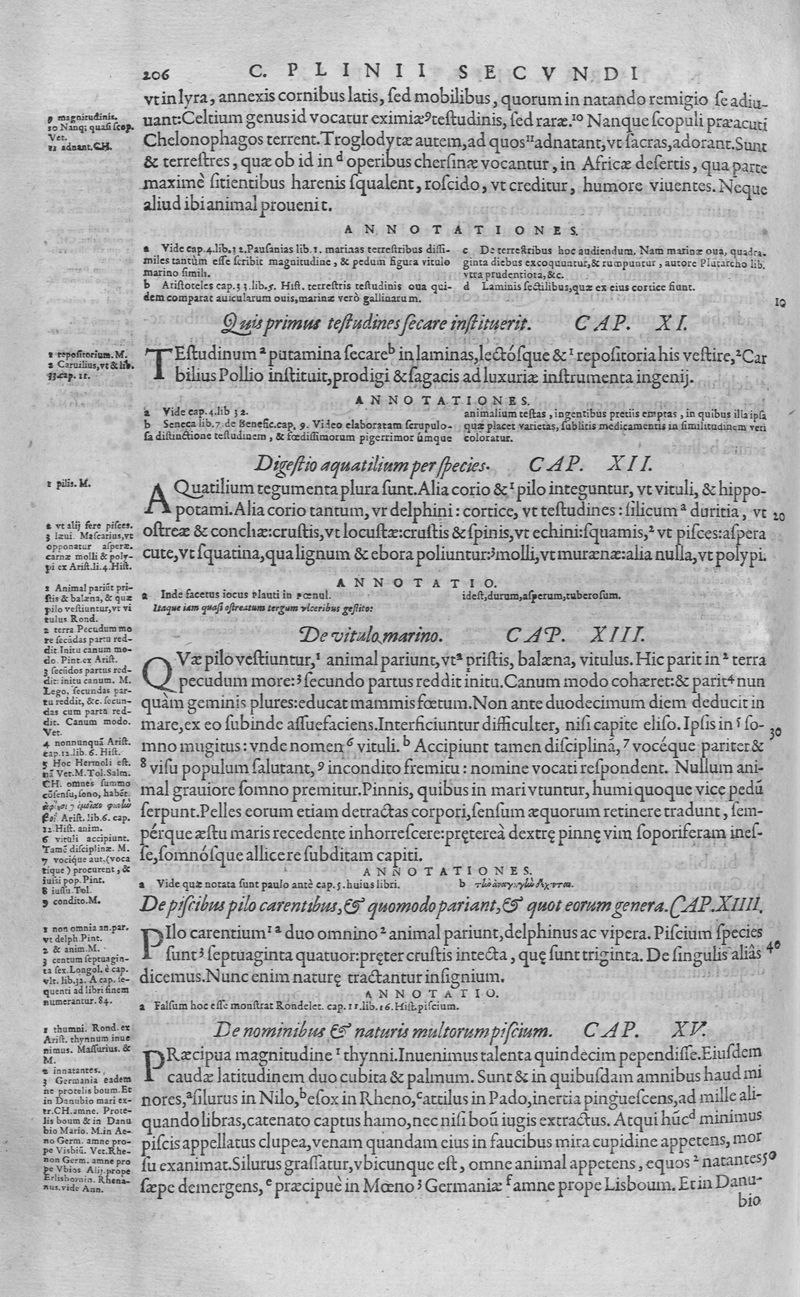 206 C. PLINII SECVNDI
vt in lyra, annexis cornibus latis, sed mobilibus, quorum in natando remigio se adiu-
uant: Celtium genus id vocatur eximiæ⁹ testudinis, sed raræ.¹⁰ Nanque scopuli præacuti
Chelonophagos terrent. Troglodytæ autem, ad quos¹¹ adnatant, vt sacras, adorant. Sunt
& terrestres, quæ ob id in ᵈ operibus chersinæ vocantur, in Africæ desertis, qua parte
maximè sitientibus harenis squalent, roscido, vt creditur, humore viuentes. Neque
aliud ibi animal prouenit.
9 magnitudinis.
10 Nanq; quasi scop.
Vet.
11 adnant. CH.
ANNOTATIONES.
a Vide cap. 4. lib. 32. Pausanias lib. 1. marinas terrestribus dissi-
miles tantùm esse scribit magnitudine, & pedum figura vitulo
marino simili.
b Aristoteles cap. 33. lib. 5. Hist. terrestris testudinis oua qui-
dem comparat auicularum ouis, marinæ verò gallinarum.
c De terrestribus hoc audiendum. Nam marinæ oua, quadra-
ginta diebus excoquuntur, & rumpuntur, autore Plutarcho lib.
vtra prudentiora, &c.
d Laminis sectilibus, quæ ex eius cortice fiunt.
10
Quis primus testudines secare instituerit. CAP. XI.
TEstudinum ᵃ putamina secare ᵇ in laminas, lectósque & ¹ repositoria his vestire, ² Car
bilius Pollio instituit, prodigi & sagacis ad luxuriæ instrumenta ingenij.
1 repositorium. M.
2 Caruilius, vt & lib.
33. cap. 11.
ANNOTATIONES.
a Vide cap. 4. lib 32.
b Seneca lib. 7. de Benefic. cap. 9. Video elaboratam scrupulo-
sa distinctione testudinem, & fœdissimorum pigerrimorúmque
animalium testas, ingentibus pretiis emptas, in quibus illa ipsa
quæ placet varietas, sublitis medicamentis in similitudinem veri
coloratur.
Digestio aquatilium per species. CAP. XII.
AQuatilium tegumenta plura sunt. Alia corio & ¹ pilo integuntur, vt vituli, & hippo-
potami. Alia corio tantum, vr delphini: cortice, vt testudines: silicum ᵃ duritia, vt 20
ostreæ & conchæ: crustis, vt locustæ: crustis & spinis, vt echini: squamis, ² vt pisces: aspera
cute, vt squatina, qua lignum & ebora poliuntur: ³ molli, vt murænæ: alia nulla, vt polypi.
1 pilis. M.
2 vt alij fere pisces.
3 læui. Mascarius, vt
opponatur asperæ.
carnæ molli & poly-
pi ex Arist. li. 4. Hist.
ANNOTATIO.
a Inde facetus iocus Plauti in Pœnul.
Itaque iam quasi ostreatum tergum vlceribus gestito:
idest, durum, asperum, tuberosum.
De vitulo marino. CAP. XIII.
QVæ pilo vestiuntur, ¹ animal pariunt, vt ᵃ pristis, balæna, vitulus. Hic parit in ² terra
pecudum more: ³ secundo partus reddit initu. Canum modo cohæret: & parit ⁴ nun
quàm geminis plures: educat mammis fœtum. Non ante duodecimum diem deducit in
mare, ex eo subinde assuefaciens. Interficiuntur difficulter, nisi capite eliso. Ipsis in ⁵ so- 30
mno mugitus: vnde nomen ⁶ vituli. ᵇ Accipiunt tamen disciplinā, ⁷ vocéque pariter &
⁸ visu populum salutant, ⁹ incondito fremitu: nomine vocati respondent. Nullum ani-
mal grauiore somno premitur. Pinnis, quibus in mari vtuntur, humi quoque vice pedū
serpunt. Pelles eorum etiam detractas corpori, sensum æquorum retinere tradunt, sem-
pérque æstu maris recedente inhorrescere: pręterea dextrę pinnę vim soporiferam ines-
se, somnósque allicere subditam capiti.
1 Animal pariūt pri-
stis & balæna, & quæ
pilo vestiuntur, vt vi
tulus Rond.
2 terra Pecudum mo
re secūdas partu red-
dit Initu canum mo-
do. Pint. ex Arist.
3 secūdos partus red-
dit: initu canum. M.
Lego, secundas par-
tu reddit, &c. secun-
das cum partu red-
dit. Canum modo.
Vet.
4 nonnunquā Arist.
cap. 12. lib. 6. Hist.
5 Hoc Hermolai est.
nā Vet. M. Tol. Salm.
CH. omnes summo
cōsensu, sono, habēt.
Arist. lib. 6. cap.
12. Hist. anim.
6 vituli accipiunt.
Tamē disciplinæ. M.
7 vocique aut. (voca
tique) procurent, &
iuisi pop. Pint.
8 iussu. Tol.
9 condito. M.
ANNOTATIONES.
a Vide quæ notata sunt paulo antè cap. 5. huius libri. b
De piscibus pilo carentibus, & quomodo pariant, & quot eorum genera. CAP. XIIII.
PIlo carentium ¹ ᵃ duo omnino ² animal pariunt, delphinus ac vipera. Piscium species
sunt ³ septuaginta quatuor: pręter crustis intecta, quę sunt triginta. De singulis aliàs 40
dicemus. Nunc enim naturę tractantur insignium.
1 non omnia an. par.
vt delph. Pint.
2 & anim. M.
3 centum septuagin-
ta sex. Longol. è cap.
vlt. lib. 32. A cap. se-
quenti ad libri finem
numerantur. 84.
ANNOTATIO.
a Falsum hoc esse monstrat Rondelet. cap. 11. lib. 16. Hist. piscium.
De nominibus & naturis multorum piscium. CAP. XV.
PRæcipua magnitudine ¹ thynni. Inuenimus talenta quindecim pependisse. Eiusdem
caudæ latitudinem duo cubita & palmum. Sunt & in quibusdam amnibus haud mi
nores, ᵃ silurus in Nilo, ᵇ esox in Rheno, ᶜ attilus in Pado, inertia pinguescens, ad mille ali-
quando libras, catenato captus hamo, nec nisi boū iugis extractus. Atqui hūc ᵈ minimus
piscis appellatus clupea, venam quandam eius in faucibus mira cupidine appetens, mor
su exanimat. Silurus grassatur, vbicunque est, omne animal appetens, equos ² natantes 50
sæpe demergens, ᵉ præcipuè in Mœno ³ Germaniæ ᶠ amne prope Lisboum. Et in Danu-
bio
1 thumni. Rond. ex
Arist. thynnum inue
nimus. Massurius. &
M.
2 innatantes.
3 Germania eadem
ne protelis boum. Et
in Danubio mari ex-
tr. CH. amne. Prote-
lis boum & in Danu
bio Mario. M. in Ae-
no Germ. amne pro-
pe Visbiū. Vet. Rhe-
non Germ. amne pro
pe Vbios Alij. prope
Erlisbornin. Rhena-
nus. vide Ann.